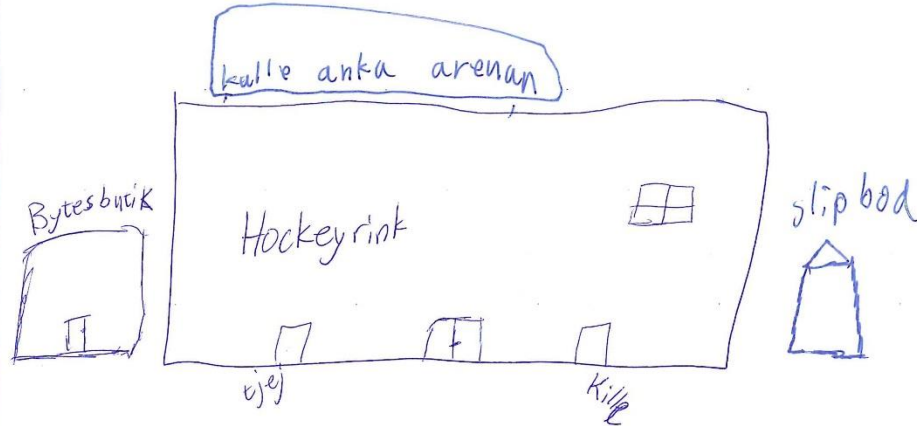 kalle anka arenan
Bytesbutik
Hockeyrink
slipbod
tjej
Kille